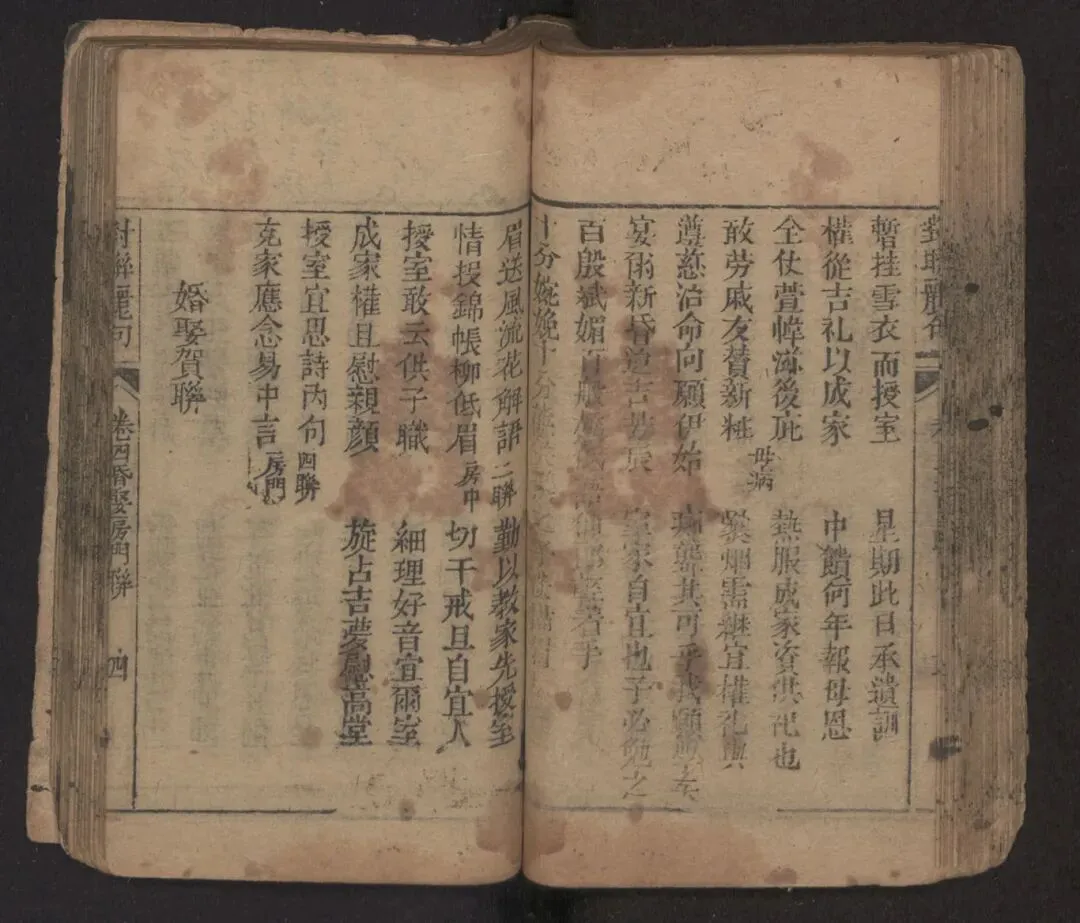 對聯麗句
暫挂雪衣而授室 星期此日承遺訓
權從吉礼以成家 中饋何年報母恩
全仗萱幃滋後庇 母病 熱服成家資供祀也
敢勞戚友贊新粧 繼宜權礼與
遵慈治命向願伊始 其可乎我願與
宴爾新昏 吉 辰 室家自宜也子必勉之
百般斌媚百般
十分婉娩十分
眉送風流花解語 二聯 勤以教家先授室
情授錦帳柳低眉 房中 切干戒旦自宜人
授室敢云供子職 細理好音宜爾室
成家權且慰親顔 旋占吉夢慰高堂
授室宜思詩內句 四聯
克家應念易中言 房門
婚娶賀聯
對聯麗句 卷四婚娶房門聯 四